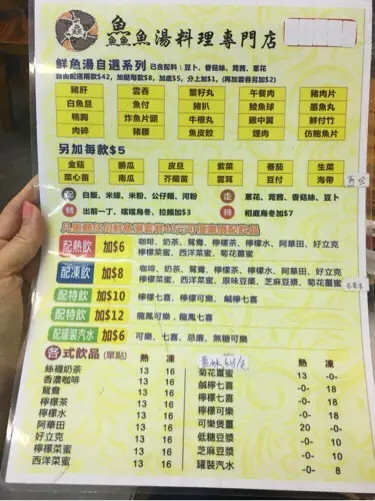 鱻魚湯料理專門店
鮮魚湯自選系列 已含配料：豆卜、香菇絲、芫茜、蔥花
自由配搭兩餸$42，加餸每款$8，加底$5，分上加$1，(再加雲吞另加$2)
豬肝 雲吞 蟹籽丸 午餐肉 豬肉片
白魚旦 魚付 豬扒 鯪魚球 墨魚丸
鴨胸 炸魚片頭 牛根丸 雞中翼 鮮付竹
肉碎 豬腰 魚皮餃 燻肉 仿鮑魚片
另加每款$5
金菇 勝瓜 皮旦 紫菜 番茄 生菜
菜心苗 南瓜 芥蘭苗 雲耳 豆付 海帶
配 白飯、米線、米粉、公仔麵、河粉
走 蔥花、芫茜、香菇絲、豆卜
轉 出前一丁、瑞瑞烏冬、拉麵加$3
轉 稻庭烏冬加$7
配熱飲 加$6 咖啡、奶茶、鴛鴦、檸檬茶、檸檬水、阿華田、好立克
檸檬菜蜜、西洋菜蜜、菊花薑蜜
配凍飲 加$8 咖啡、奶茶、鴛鴦、檸檬茶、檸檬水、阿華田、好立克
檸檬菜蜜、西洋菜蜜、原味豆漿、芝麻豆漿、菊花薑蜜
配特飲 加$10 檸檬七喜、檸檬可樂、鹹檸七喜
配特飲 加$12 龍鳳可樂、龍鳳七喜
配罐裝汽水 加$6 可樂、七喜、忌廉、無糖可樂
各式飲品 (單點) 熱 凍
絲襪奶茶 13 16
香濃咖啡 13 16
鴛鴦 13 16
檸檬茶 13 16
檸檬水 13 16
阿華田 13 16
好立克 13 16
檸檬菜蜜 13 16
西洋菜蜜 13 16
熱 凍
菊花薑蜜 13 -0-
鹹檸七喜 -0- 18
檸檬七喜 -0- 18
檸檬可樂 -0- 18
可樂煲薑 20 -0-
低糖豆漿 -0- 10
芝麻豆漿 -0- 10
罐裝汽水 -0- 8